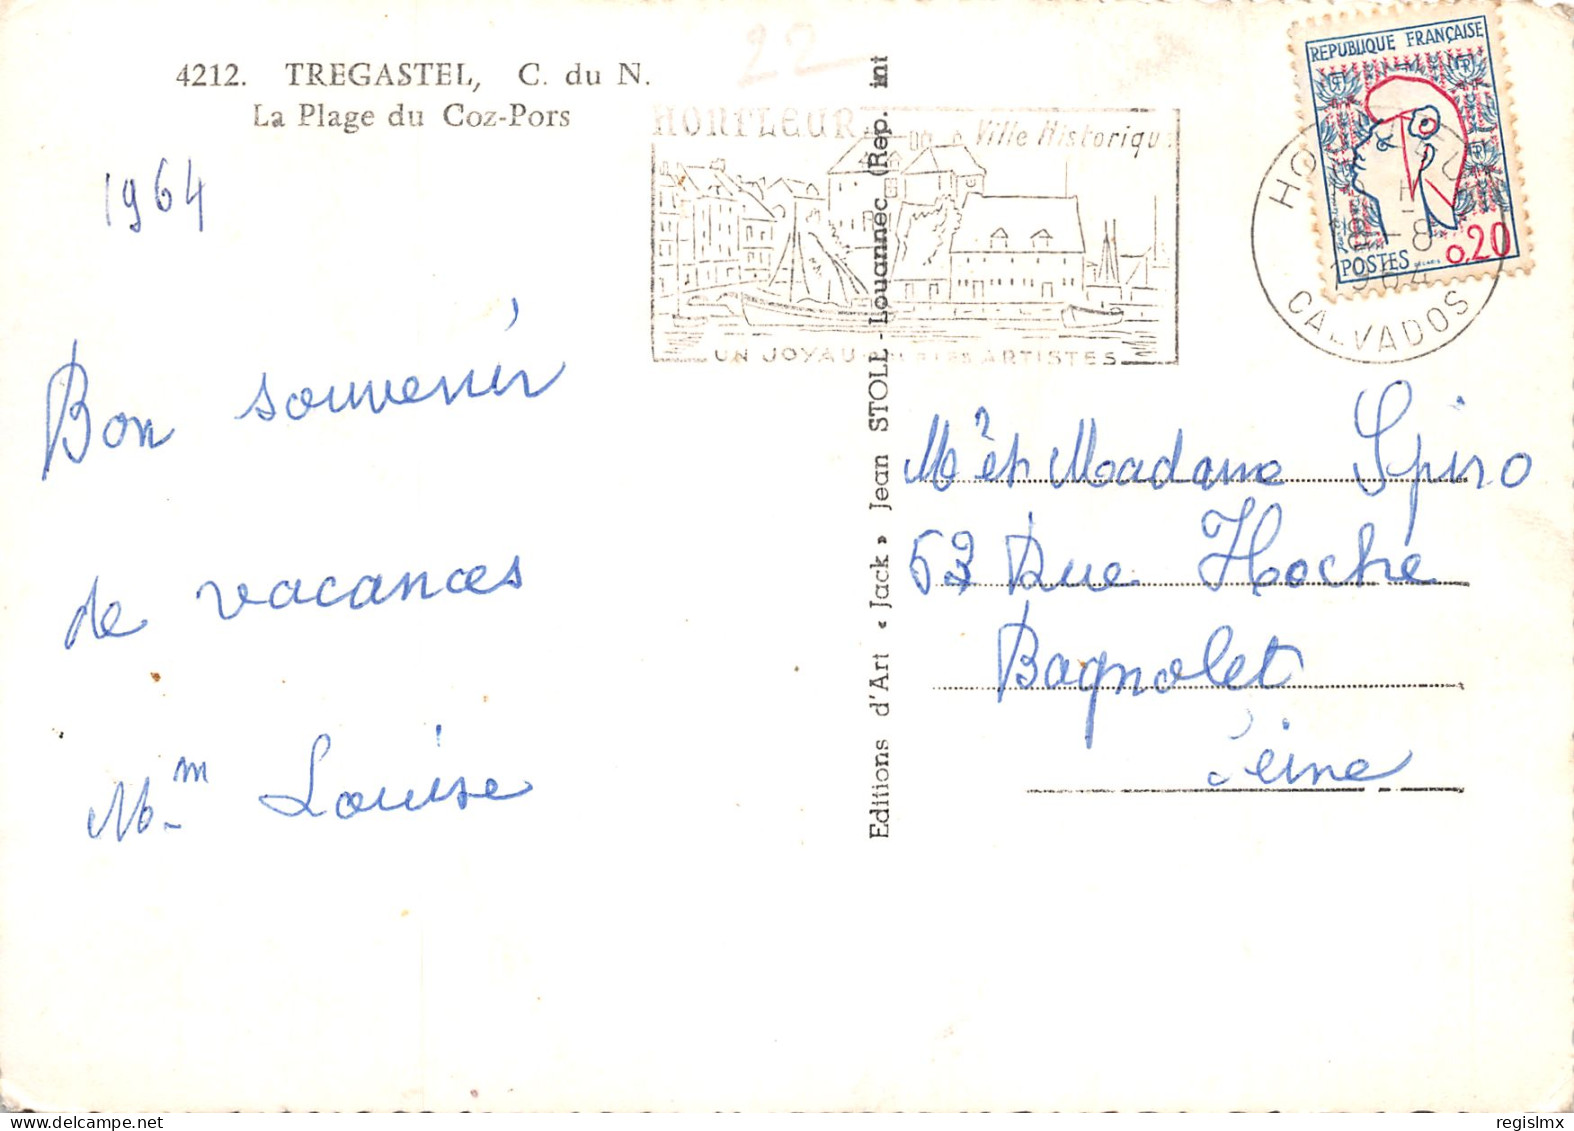 4212. TREGASTEL, C. du N.
La Plage du Coz-Pors
22
1964
HONFLEUR
Ville Historique
UN JOYAU ARTISTES
REPUBLIQUE FRANÇAISE
POSTES 0,20
HONFLEUR
18-8
1964
CALVADOS
Bon souvenir
de vacances
Mm Louise
Editions d'Art « Jack » Jean STOLL - Louannec (Rep. int
Mr et Madame Spiro
53 Rue Hoche
Bagnolet
Seine
regislmx